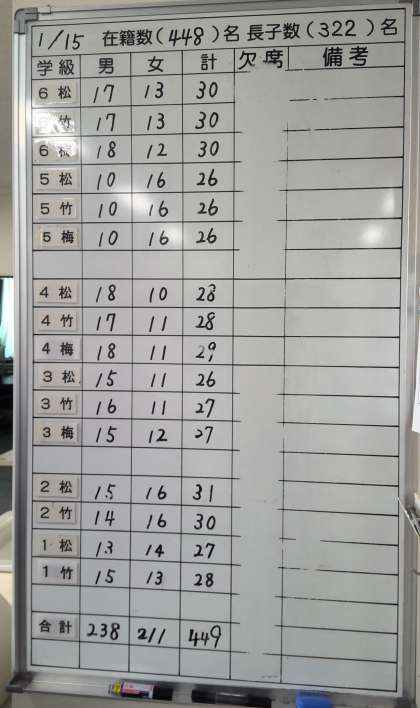 1/15 在籍数(448)名 長子数(322)名
学級 男 女 計 欠席 備考
6 松 17 13 30
竹 17 13 30
6 梅 18 12 30
5 松 10 16 26
5 竹 10 16 26
5 梅 10 16 26
4 松 18 10 28
4 竹 17 11 28
4 梅 18 11 29
3 松 15 11 26
3 竹 16 11 27
3 梅 15 12 27
2 松 15 16 31
2 竹 14 16 30
1 松 13 14 27
1 竹 15 13 28
合計 238 211 449